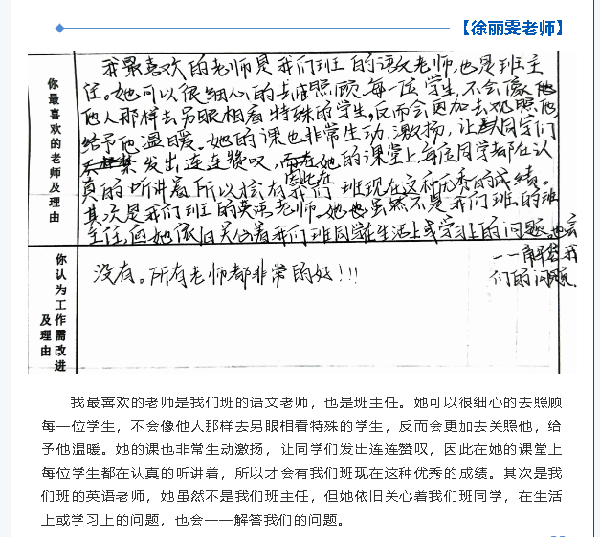 【徐丽雯老师】
你最喜欢的老师及理由
我最喜欢的老师是我们班的语文老师,也是班主
任。她可以很细心的去照顾每一位学生,不会像他
他人那样去另眼相看特殊的学生,反而会更加去观照他
给予他温暖。她的课也非常生动激扬,让同学们
发出连连赞叹,而在她的课堂上每位同学都在认
因此在
真的听讲着所以才会有我们班现在这种优秀的成绩。
其次是我们班的英语老师。她也虽然不是我们班的班
主任,但她依旧关心着我们班同学在生活上或学习上的问题。也会
一一解答我
们的问题
你认为工作需改进及理由
没有。所有老师都非常的好!!!
我最喜欢的老师是我们班的语文老师,也是班主任。她可以很细心的去照顾
每一位学生,不会像他人那样去另眼相看特殊的学生,反而会更加去关照他,给
予他温暖。她的课也非常生动激扬,让同学们发出连连赞叹,因此在她的课堂上
每位学生都在认真的听讲着,所以才会有我们班现在这种优秀的成绩。其次是我
们班的英语老师,她虽然不是我们班主任,但她依旧关心着我们班同学,在生活
上或学习上的问题,也会一一解答我们的问题。